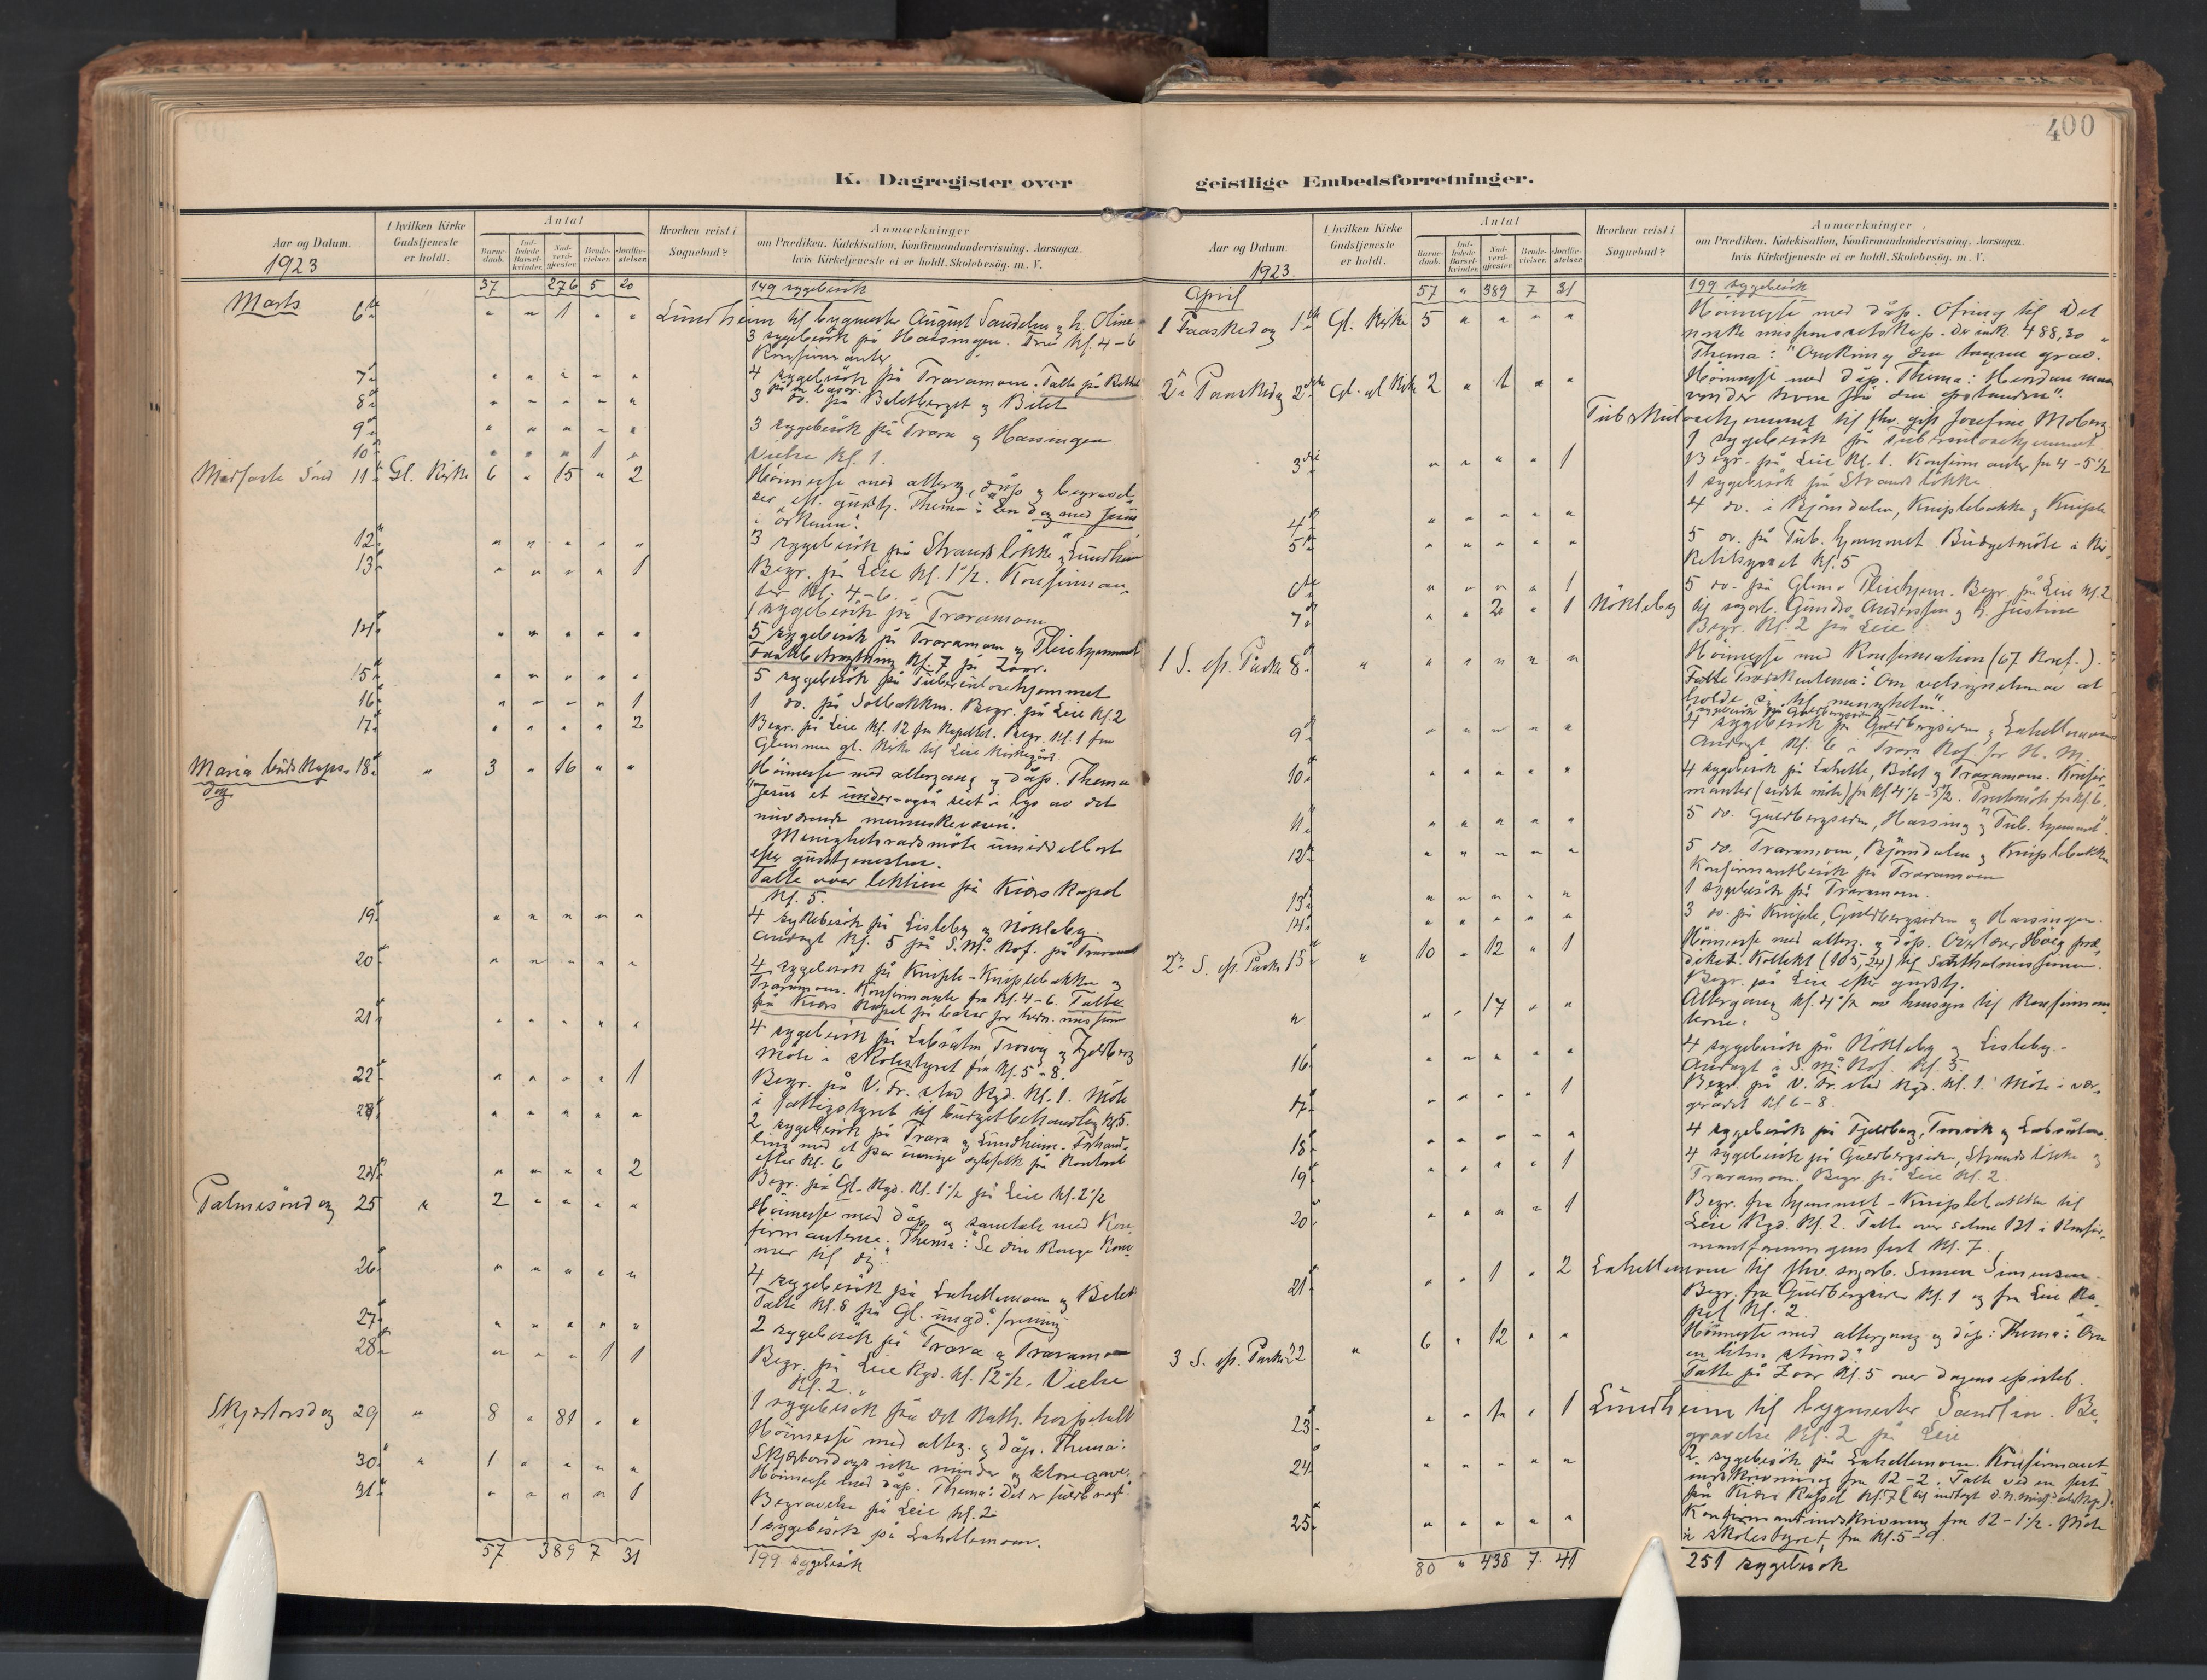 400
K. Dagregister over geistlige Embedsforretninger.
Aar og Datum.
1923
I hvilken Kirke Gudstjeneste er holdt.
Antal
Barnedaab.
Indledede Barselkvinder.
Nadverdgjester.
Brudevielser.
Jordfæstelser.
Hvorhen reist i Sognebud?
Anmærkninger
om Prædiken, Katekisation, Konfirmandundervisning, Aarsagen,
hvis Kirketjeneste ei er holdt, Skolebesøg, m. V.
37 276 5 20 149 sygebesök
Marts 6te " " 1 " " Lundheim til bygmester August Sandelin og h. Oline
3 sygebesök på Haisingen. kl. 4-6
Konfirmanter
7 " " " " " 4 sygebesök på Traramoen. Talte på
på en basar.
8 " " " " " 3 do. på Biletberget og Bilet
9 " " " " " 3 sygebesök på Trara og Hassingen
10 " " " 1 " Vielse kl. 1.
Midfaste Sönd 11 Gl. Kirke 6 " 15 " 2 Höimesse med alterg., dåp og begravel-
ser eft. gudstj. Thema: En dag med Jesus
i örkenen.
12 " " " " " 3 sygebesök på Strandlökka og Lundheim
13 " " " " 1 Begr. på Leie kl. 1 1/2. Konfirman-
ter kl. 4-6.
1 sygebesök på Traramoen
14 " " " " " 5 sygebesök på Traramoen og Pleiehjemmet
kl. 7 på Zoar.
15 " " " " " 5 sygebesök på Tuberculosehjemmet
16 " " " " 1 1 do. på Solbakken. Begr. på Leie kl. 2
17 " " " " 2 Begr. på Leie kl. 12 fra Kapellet. Begr. kl. 1 fra
Glemmen gl. kirke til Leie kirkegård.
Maria budskaps- 18 " 3 " 16 " " Höimesse med altergang og dåp. Thema
dag
"Jesus et under - også seet i lys av det
nuværende menneskevæsen".
Menighetsrådsmöte umiddelbart
efter gudstjenesten.
Talte over lektien på Kiærs Kapel
kl. 5.
19 " " " " " 4 sykebesök på Lisleby og Nökleby.
Andagt kl. 5 på S.M. Kof. på
20 " " " " " 4 sygebesök på Kniple - Kniplebakken og
Traramoen. Konfirmanter fra kl. 4-6. Talte
på Kiærs Kapel på basar for hedn. missjon
21 " " " " " 4 sygebesök på Labråten, Trosvig og Fjeldberg
Möte i skolestyret fra kl. 5-8.
22 " " " " 1 Begr. på V. Fr. stad Kgd. kl. 1. Möte
i fattigstyret til budgetbehandling kl. 5.
23 " " " " " 2 sygebesök på Trara og Lundheim. Forhand-
ling med et par uenige egtefolk på Kontoret
efter kl. 6
24 " " " " 2 Begr. på Gl. Kgd. kl. 1 1/2 på Leie kl. 2 1/2
Palmesöndag 25 " 2 " " " " Höimesse med dåp og samtale med Kon-
firmanterne. Thema: "Se din Konge kom-
mer til dig".
26 " " " " " 4 sygebesök på Lahellemoen og Bilet
Talte kl. 8 på Gl. ungd. forening
27 " " " " " 2 sygebesök på Trara og Traramoen
28 " " " 1 1 Begr. på Leie Kgd. kl. 12 1/2. Vielse
kl. 2.
1 sygebesök på det Kath. hospitalet
Skjærtorsdag 29 " 8 " 81 " " Höimesse med alterg. og dåp. Thema:
Skjærtorsdags rike minder og store gave.
30 " 1 " " " " Höimesse med dåp. Thema: Det er fuldbragt.
31 " " " " 1 Begravelse på Leie kl. 2
1 sygebesök på Lahellemoen.
57 389 7 31 199 sygebesök
Aar og Datum.
1923.
I hvilken Kirke Gudstjeneste er holdt.
Antal
Barnedaab.
Indledede Barselkvinder.
Nadverdgjester.
Brudevielser.
Jordfæstelser.
Hvorhen reist i Sognebud?
Anmærkninger
om Prædiken, Katekisation, Konfirmandundervisning, Aarsagen,
hvis Kirketjeneste ei er holdt, Skolebesøg, m. V.
57 " 389 7 31 199 sygebesök
April
1 Paaskedag 1ste Gl. Kirke 5 " " " " Höimesse med dåp. Ofring til Det
norske missionsselskap. Der ink. 488,30
Thema: "Omkring den tomme grav.
2 Paaskedag 2den Gl. Kirke 2 " 1 " " Höimesse med dåp. Thema: Hvordan man
vender hjem fra den opstandne".
Tuberkulosehjemmet til fhv. gift Josefine Moberg
1 sygebesök på Tuberculosehjemmet
3die " " " " 1 Begr. på Leie kl. 1. Konfirmanter fra 4-5 1/2
1 sygebesök på Strandlökka
4 " " " " " 4 do. i Bjørndalen, Kniplebakken og Kniple
5 " " " " " 5 do. på Tub. hjemmet. Budgetmöte i
kl. 5
6te " " " " 1 5 do. på Glemm. Pleiehjem. Begr. på Leie kl. 2
7 " " 2 " 1 Nökleby til sagarb. Gunder Anderssen og h. Justine
Begr. kl. 2 på Leie.
1 S. eft. Paaske 8 " " " " " " Höimesse med Konfirmation (67 Konf.).
Talte Thema: Om velsignelsen av at
holde sig til menigheten".
1 sygebesök på Guldbergsiden
9 " " " " " 4 sygebesök på Guldbergsiden og Lahellemoen
Andagt kl. 6 i Trara Kof for H. M.
10 " " " " " 4 sygebesök på Lahelle, Bilet og Traramoen. Konfir-
manter (sidste möte) fra kl. 4 1/2 - 5 1/2. fra kl. 6.
11 " " " " " 5 do. Guldbergsiden, Hassing og Tub. hjemmet.
12 " " " " " 5 do. Traramoen, Bjørndalen og Kniplebakken
Konfirmantbesök på Traramoen
13 " " " " " 1 sygebesök på Traramoen.
14 " " " " " 3 do. på Kniple, Guldbergsiden og Hassingen.
2 S. eft. Paaske 15 " 10 " 12 " 1 Höimesse med alterg. og dåp. Overlærer Höeg præ-
diket. Kollekt (105,24) til Santhalmissionen.
Begr. på Leie efter gudstj.
" " " 17 " " Altergang kl. 4 1/2 m hensyn til Konfirman-
terne.
16 " " " " " 4 sygebesök på Nökleby og Lisleby.
Andagt i S.M. Kof. kl. 5.
17 " " " " 1 Begr. på V. Fr. stad Kgd. kl. 1. Möte i vær-
gerådet kl. 6-8.
18 " " " " " 4 sygebesök på Fjeldberg, Trosvik og Labråten.
19 " " " " 1 4 sygebesök på Guldbergsiden, Strandlökka og
Traramoen. Begr. på Leie kl. 2.
20 " " " " 1 Begr. fra hjemmet - Kniplebakken til
Leie Kgd. kl. 2. Talte over salme 121 i Konfir-
mantforeningens fest kl. 7.
21 " " 1 " 2 Lahellemoen til fhv. sagarb. Simen Simensen.
Begr. fra Guldbergsiden kl. 1 og fra Leie Ka-
pel kl. 2.
3 S. eft. Paaske 22 " 6 " 12 " " Höimesse med altergang og dåp. Thema: Om
en liten stund."
Talte på Zoar kl. 5 over dagens epistel.
23 " " 1 " 1 Lundheim til bygmester Sandlin. Be-
gravelse kl. 2 på Leie
24 " " " " " 2 sygebesök på Lahellemoen. Konfirmant-
indskrivning fra 12-2. Talte ved en fest
på Kiærs Kapel kl. 7 (til indtægt d. n. miss. selskap).
25 " " " " " Konfirmantindskrivning fra 12 - 1 1/2. Möte
i skolestyret fra kl. 5-9.
80 " 438 7 41 251 sygebesök